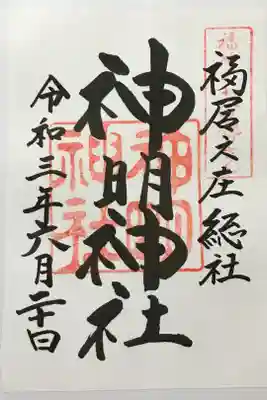 福居之庄総社
神明神社
神明
神社
令和三年六月二十日